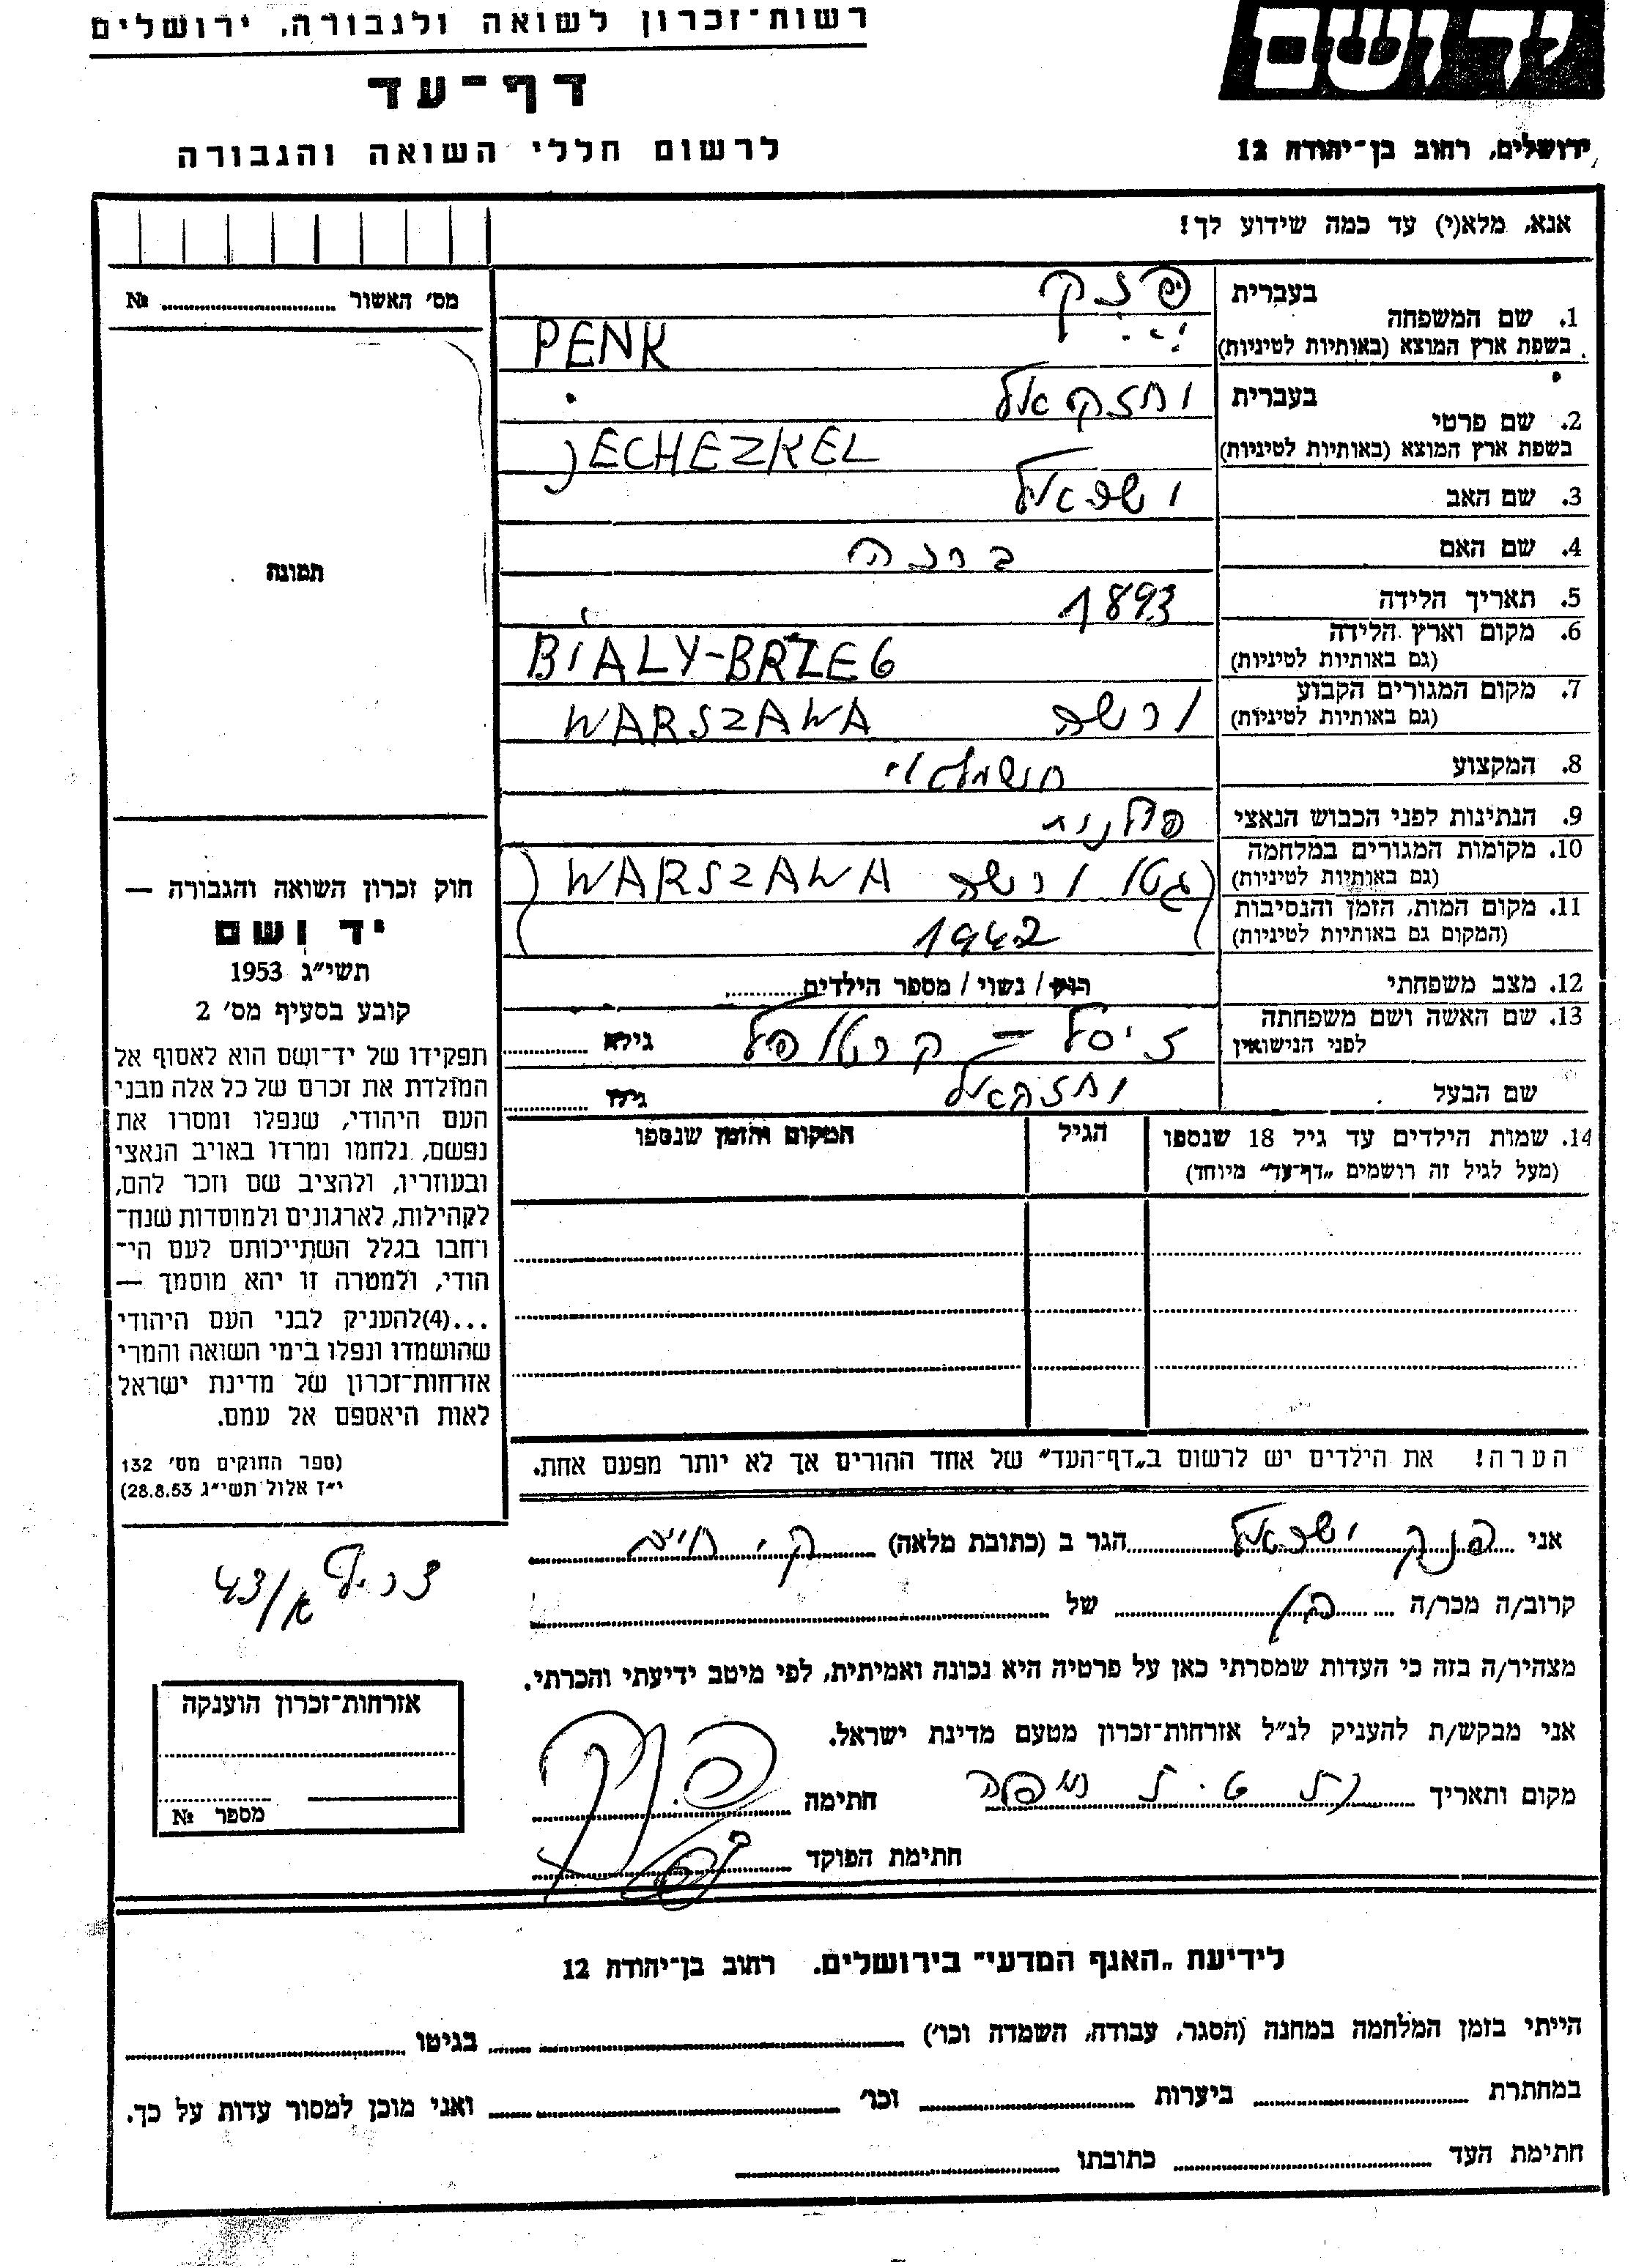 רשות־זכרון לשואה ולגבורה, ירושלים
דף־עד
לרשום חללי השואה והגבורה
יד ושם
ירושלים, רחוב בן־יהודה 12
אנא, מלא(י) עד כמה שידוע לך!
מס׳ האשור ........ №
1. שם המשפחה
בעברית פנק
בשפת ארץ המוצא (באותיות לטיניות) PENK
2. שם פרטי
בעברית יחזקאל
בשפת ארץ המוצא (באותיות לטיניות) JECHEZKEL
3. שם האב ישראל
4. שם האם ברכה
5. תאריך הלידה 1893
6. מקום וארץ הלידה
(גם באותיות לטיניות) BIALY-BRZEG
7. מקום המגורים הקבוע
(גם באותיות לטיניות) ורשה WARSZAWA
8. המקצוע חשמלאי
9. הנתינות לפני הכבוש הנאצי פולנית
10. מקומות המגורים במלחמה
(גם באותיות לטיניות) (גטו ורשה WARSZAWA)
11. מקום המות, הזמן והנסיבות
(המקום גם באותיות לטיניות) 1942
12. מצב משפחתי רווק / נשוי / מספר הילדים........
13. שם האשה ושם משפחתה
לפני הנישואין זיסל = קרטופל גילה ........
שם הבעל יחזקאל גילו ........
14. שמות הילדים עד גיל 18 שנספו
(מעל לגיל זה רושמים „דף־עד״ מיוחד)
הגיל
המקום והזמן שנספו
תמונה
חוק זכרון השואה והגבורה —
יד ושם
תשי״ג 1953
קובע בסעיף מס׳ 2
תפקידו של יד־ושם הוא לאסוף אל
המולדת את זכרם של כל אלה מבני
העם היהודי, שנפלו ומסרו את
נפשם, נלחמו ומרדו באויב הנאצי
ובעוזריו, ולהציב שם וזכר להם,
לקהילות, לארגונים ולמוסדות שנח־
רחבו בגלל השתייכותם לעם הי־
הודי, ולמטרה זו יהא מוסמך —
...(4) להעניק לבני העם היהודי
שהושמדו ונפלו בימי השואה והמרי
אזרחות־זכרון של מדינת ישראל
לאות היאספם אל עמם.
(ספר החוקים מס׳ 132
י״ז אלול תשי״ג 28.8.53)
הערה! את הילדים יש לרשום ב„דף־העד״ של אחד ההורים אך לא יותר מפעם אחת.
אני פנק ישראל הגר ב (כתובת מלאה) ק. חיים
צריף א/43
קרוב/ה מכר/ה בן של ........
מצהיר/ה בזה כי העדות שמסרתי כאן על פרטיה היא נכונה ואמיתית, לפי מיטב ידיעתי והכרתי.
אני מבקש/ת להעניק לנ״ל אזרחות־זכרון מטעם מדינת ישראל.
מקום ותאריך ........ חתימה ........
חתימת הפוקד ........
אזרחות־זכרון הוענקה
מספר №
לידיעת „האגף המדעי״ בירושלים. רחוב בן־יהודה 12
הייתי בזמן המלחמה במחנה (הסגר, עבודה, השמדה וכו׳) ........ בגיטו ........
במחתרת ........ ביערות ........ וכו׳ ........ ואני מוכן למסור עדות על כך.
חתימת העד ........ כתובתו ........